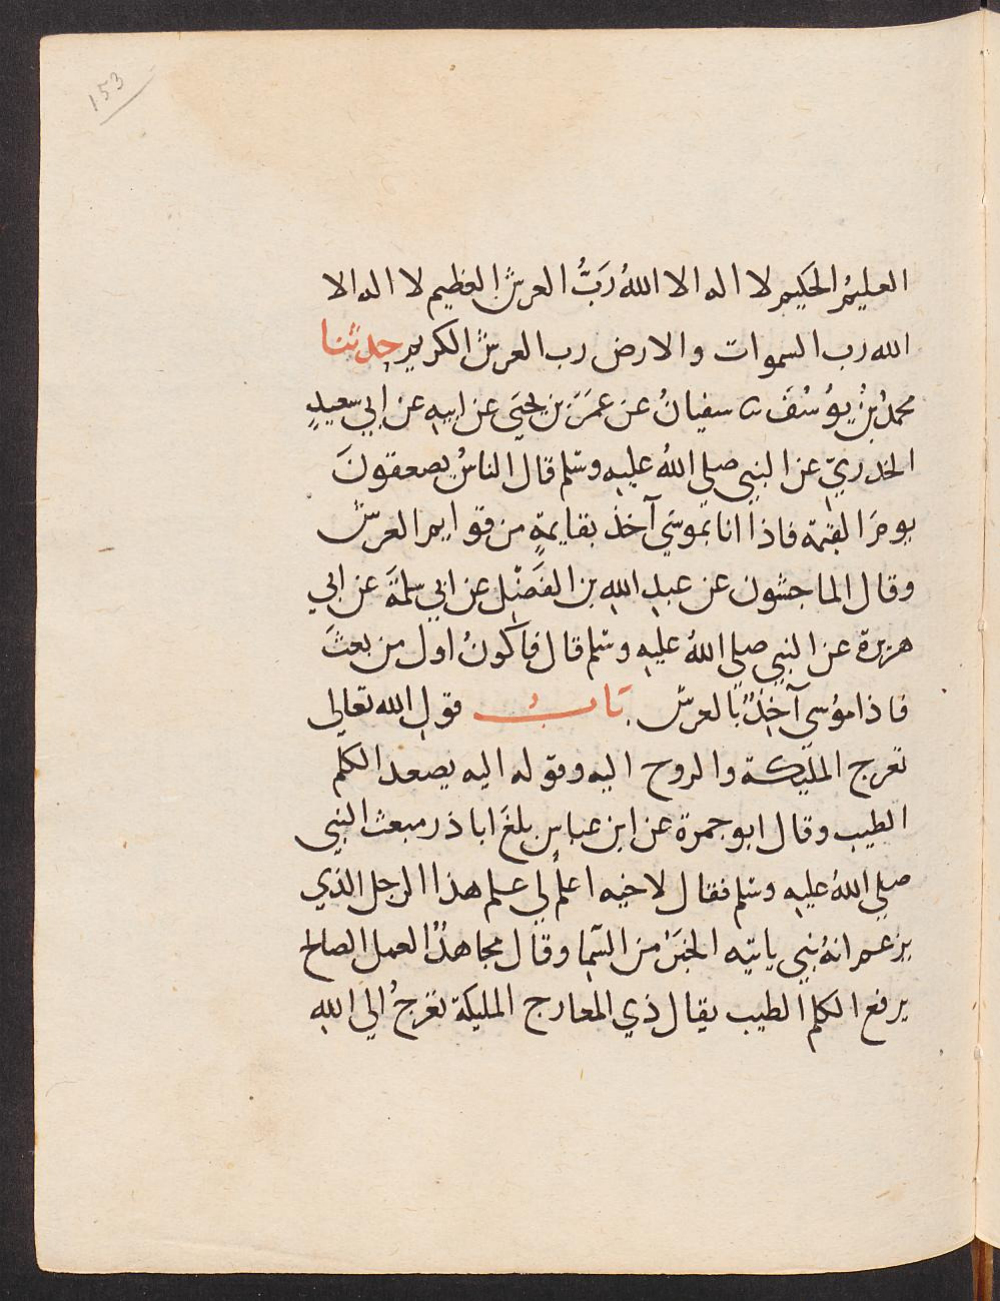 153
العليمُ الحَكيم لا اله الا اللهُ رَبُّ العرش العظيم لا اله الا
الله رب السموات والارض رب العرش الكريم حدثنا
محمدُ بنُ يوُسُفَ ثنا سفيانُ عن عَمرَ بن يحيَى عن ابيهِ عن ابي سعيدٍ
الخدريّ عن النبي صلى اللهُ عليه وسلم قال الناسُ يصعقونَ
يومَ القيمة فاذا انا بموسَي آخذ بقايمةٍ من قوايم العرش
وقال الماجشون عن عبدِ اللهِ بن الفَضْلِ عن ابي سلمَةَ عن ابي
هريرة عن النبي صلي اللهُ عليهِ وسلم قال فأكونُ اول من بعثَ
فاذا موُسي آخِذٌ بالعرش بَابُ قول الله تعالي
تعرج المليكة والروح اليه وقوله اليه يصعد الكلم
الطيب وقال ابو جمرة عن ابن عباس بلغَ اباذر مبعث النبي
صلي اللهُ عليهِ وسلم فقال لاخيه اعلم لي علم هذا الرجل الذي
يزعم انهُ نبي ياتيه الخبَرُ من السَّما وقال مجاهدٌ العمل الصالح
يرفع الكلم الطيب يقال ذي المعارج المليكة تعرجُ الي اللهِ